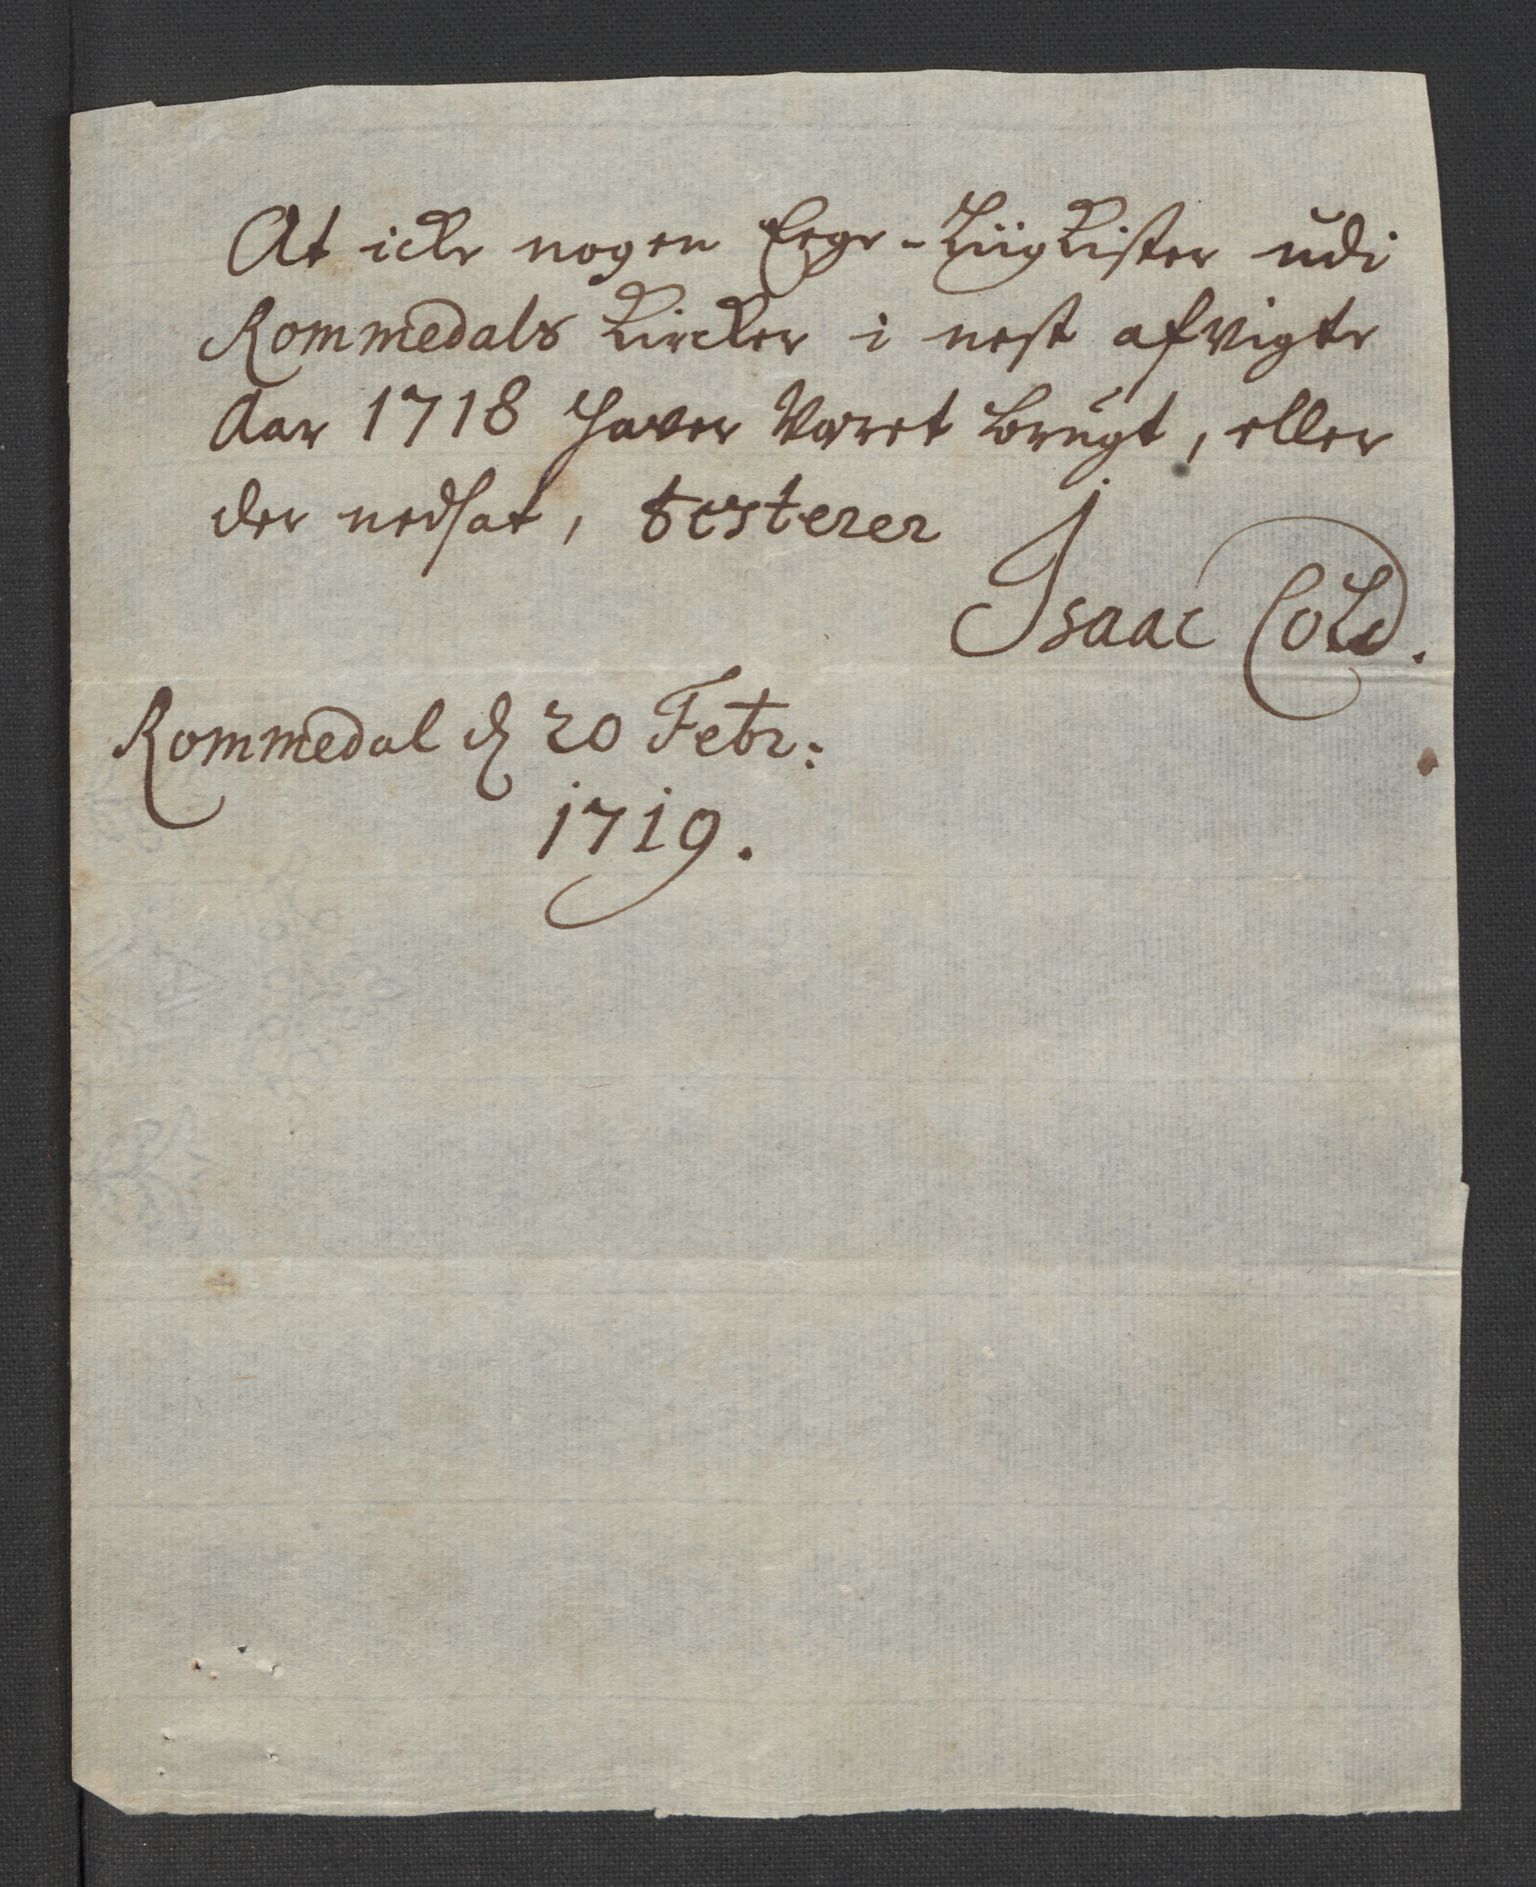 At icke nogen Eege-Liigkister udi
Rommedals kircker i nest afvigte
Aar 1718 haver Været brugt, eller
der nedsat, testerer
Isaac Cold.
Rommedal d 20 Febr:
1719.